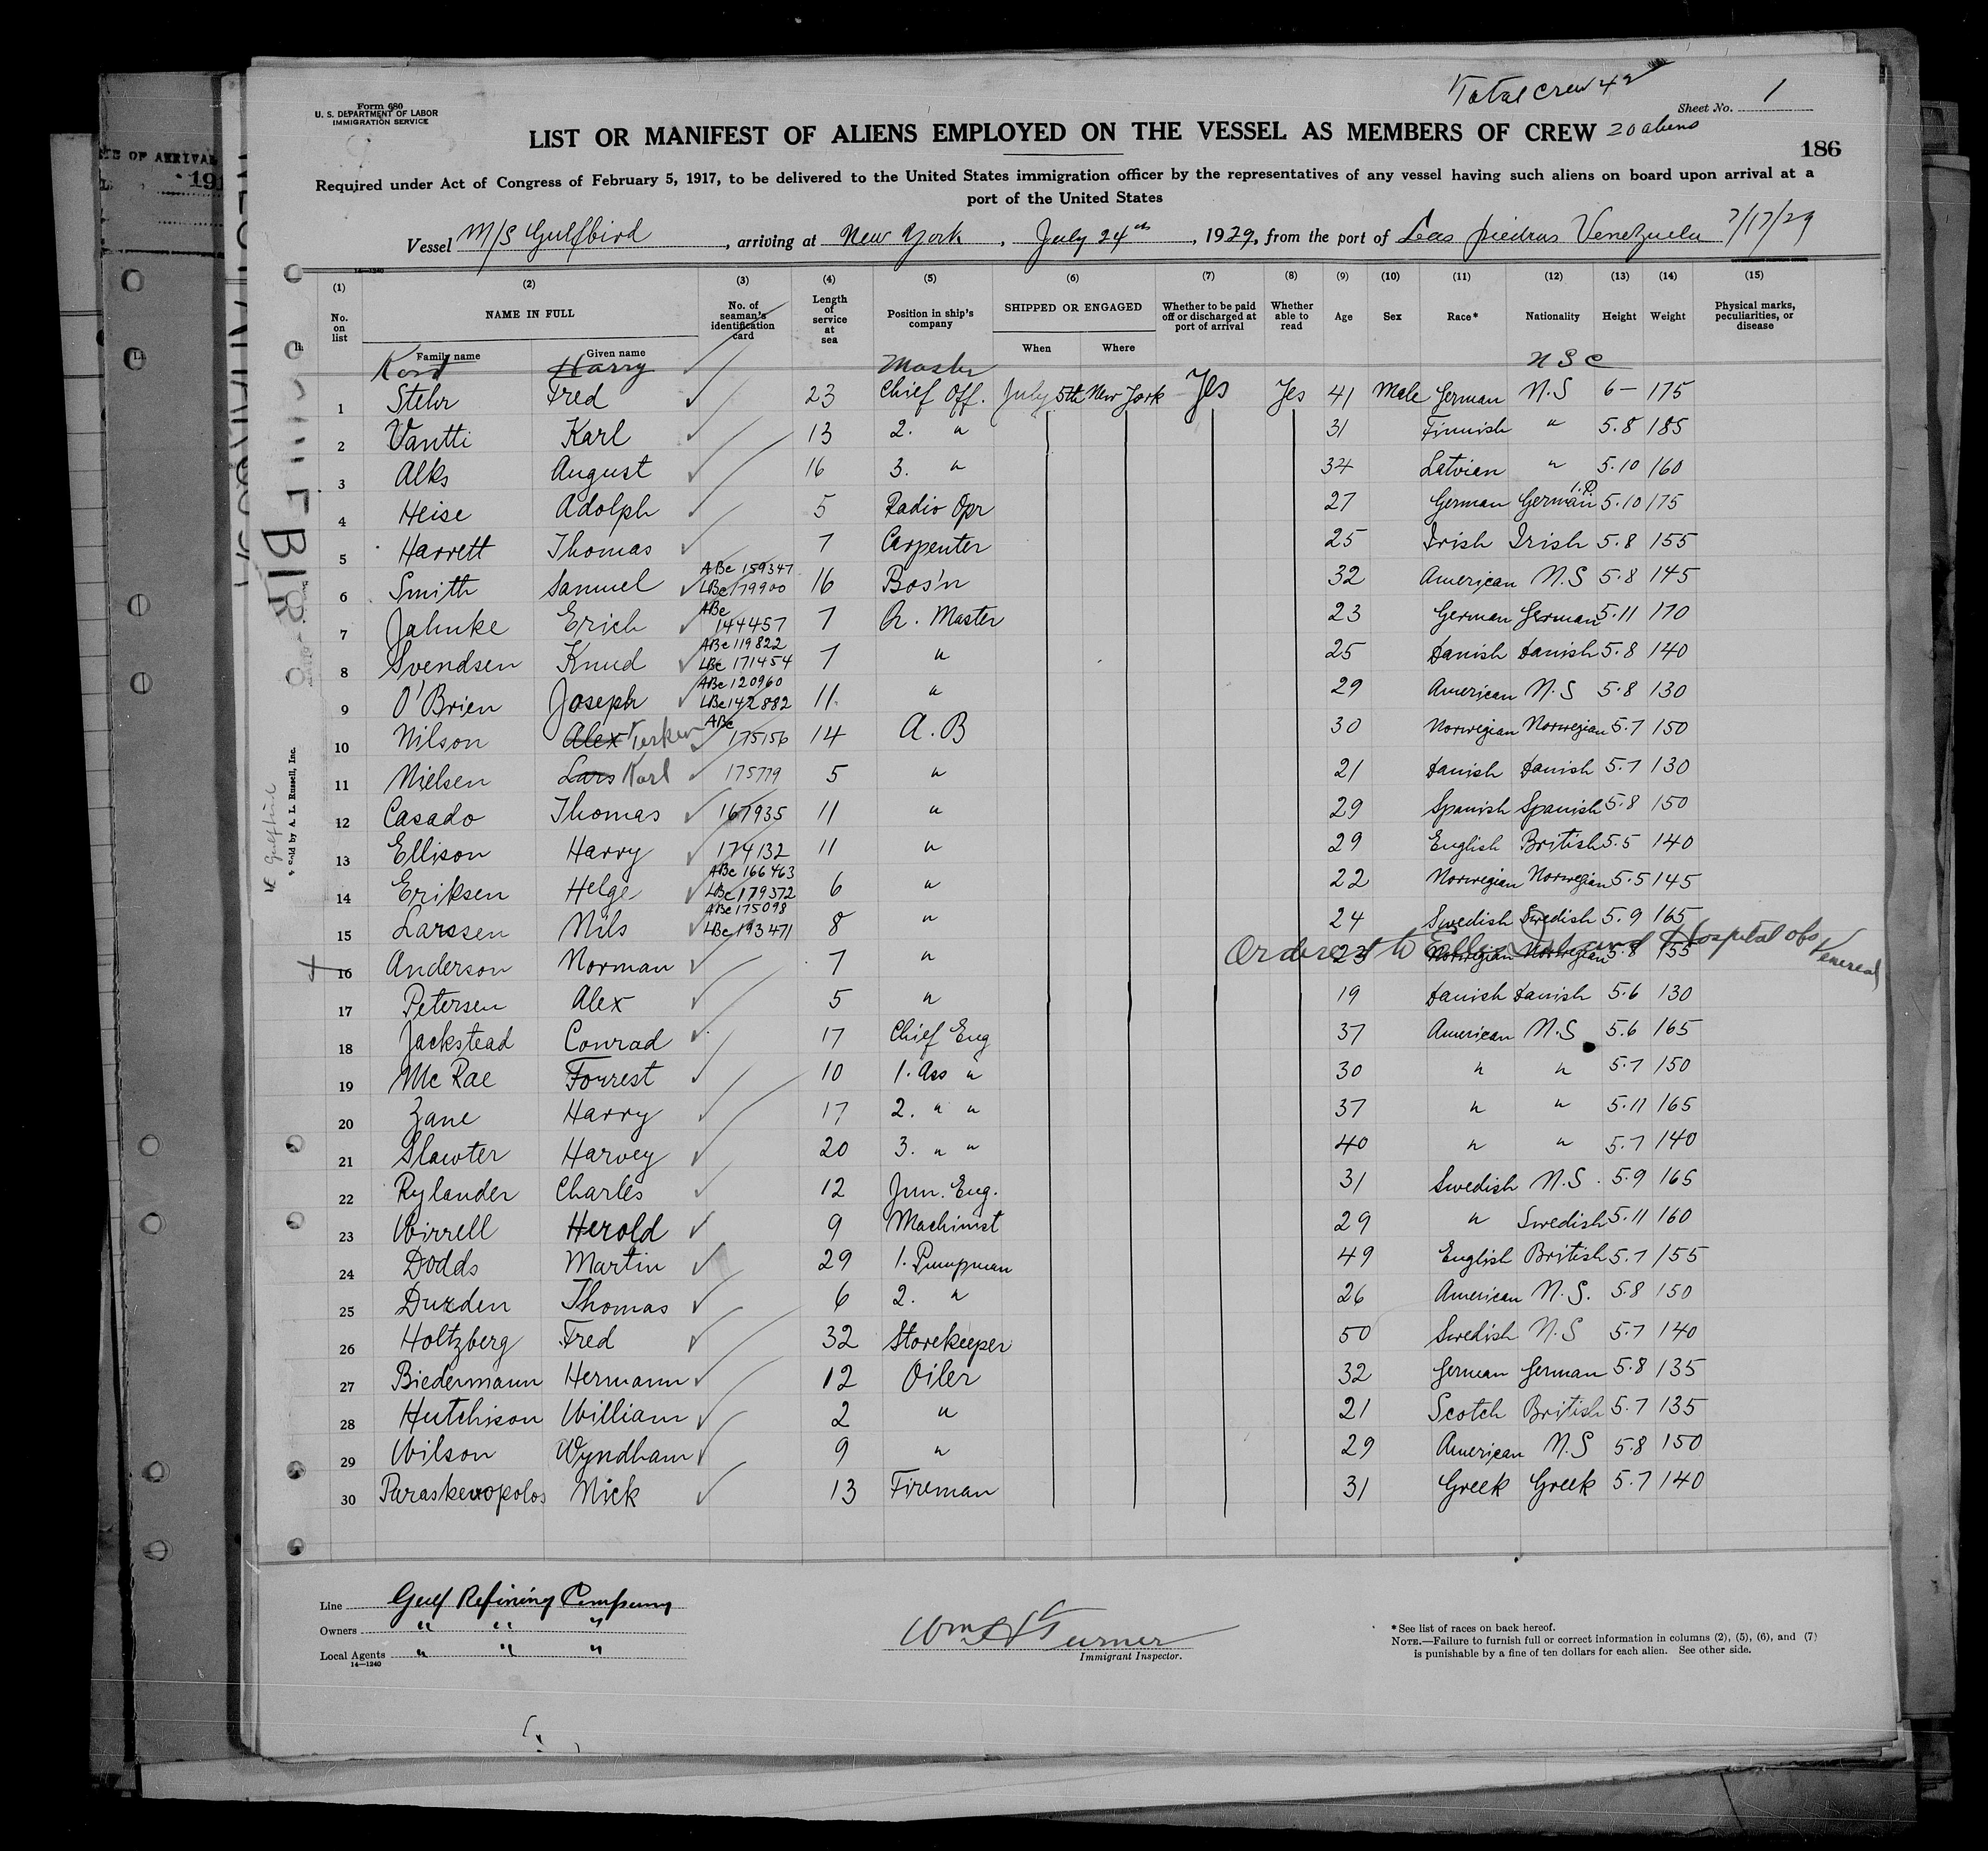 Total crew 42
Form 680
U. S. DEPARTMENT OF LABOR
IMMIGRATION SERVICE
Sheet No. 1
LIST OR MANIFEST OF ALIENS EMPLOYED ON THE VESSEL AS MEMBERS OF CREW 20 aliens
186
Required under Act of Congress of February 5, 1917, to be delivered to the United States immigration officer by the representatives of any vessel having such aliens on board upon arrival at a
port of the United States
Vessel M/S Gulfbird, arriving at New York, July 24th, 1929, from the port of Las piedras Venezuela 7/17/29
14—1240
(1) (2) (3) (4) (5) (6) (7) (8) (9) (10) (11) (12) (13) (14) (15)
No. on list NAME IN FULL No. of seaman's identification card Length of service at sea Position in ship's company SHIPPED OR ENGAGED Whether to be paid off or discharged at port of arrival Whether able to read Age Sex Race* Nationality Height Weight Physical marks, peculiarities, or disease
Family name Given name When Where
Harry Master U S C
1 Stehr Fred 23 Chief Off. July 5th New York Yes Yes 41 Male German U.S 6— 175
2 Vantti Karl 13 2. " 31 Finnish " 5.8 185
3 Alks August 16 3. " 34 Latvian " 5.10 160
4 Heise Adolph 5 Radio Opr 27 German German 1.P. 5.10 175
5 Harrett Thomas 7 Carpenter 25 Irish Irish 5.8 155
6 Smith Samuel ABc 159347 LBc 179900 16 Bos'n 32 American U.S 5.8 145
7 Jahnke Erich ABc 144457 7 Qr. Master 23 German German 5.11 170
8 Svendsen Knud ABc 119822 LBc 171454 7 " 25 Danish Danish 5.8 140
9 O'Brien Joseph ABc 120960 LBc 142882 11. " 29 American U.S 5.8 130
10 Nilson Alex ABc 175156 14 A.B 30 Norwegian Norwegian 5.7 150
11 Nielsen Lars Karl 175779 5 " 21 Danish Danish 5.7 130
12 Casado Thomas 167935 11 " 29 Spanish Spanish 5.8 150
13 Ellison Harry 174132 11 " 29 English British 5.5 140
14 Eriksen Helge ABc 166463 LBc 179372 6 " 22 Norwegian Norwegian 5.5 145
15 Larssen Nils ABc 175098 LBc 193471 8 " 24 Swedish Swedish 5.9 165
Ordered to Ellis Island Hospital obs Venereal
16 Anderson Norman 7 " 23 Norwegian Norwegian 5.8 155
17 Petersen Alex 5 " 19 Danish Danish 5.6 130
18 Jackstead Conrad 17 Chief Eng 37 American U.S 5.6 165
19 Mc Rae Forrest 10 1. Ass " 30 " " 5.7 150
20 Zane Harry 17 2. " " 37 " " 5.11 165
21 Slawter Harvey 20 3. " " 40 " " 5.7 140
22 Rylander Charles 12 Jun. Eng. 31 Swedish U.S. 5.9 165
23 Wirrell Herold 9 Machinist 29 " Swedish 5.11 160
24 Dodds Martin 29 1. Pumpman 49 English British 5.7 155
25 Durden Thomas 6 2. " 26 American U.S. 5.8 150
26 Holtzberg Fred 32 Storekeeper 50 Swedish U.S 5.7 140
27 Biedermann Hermann 12 Oiler 32 German German 5.8 135
28 Hutchison William 2 " 21 Scotch British 5.7 135
29 Wilson Wyndham 9 " 29 American U.S 5.8 150
30 Paraskevopolos Nick 13 Fireman 31 Greek Greek 5.7 140
Line Gulf Refining Company
Owners " " "
Local Agents " " "
14—1240
Wm H Turner
Immigrant Inspector.
*See list of races on back hereof.
NOTE.—Failure to furnish full or correct information in columns (2), (5), (6), and (7)
is punishable by a fine of ten dollars for each alien. See other side.
Sold by A. L. Russell, Inc.
OF ARRIVAL
191